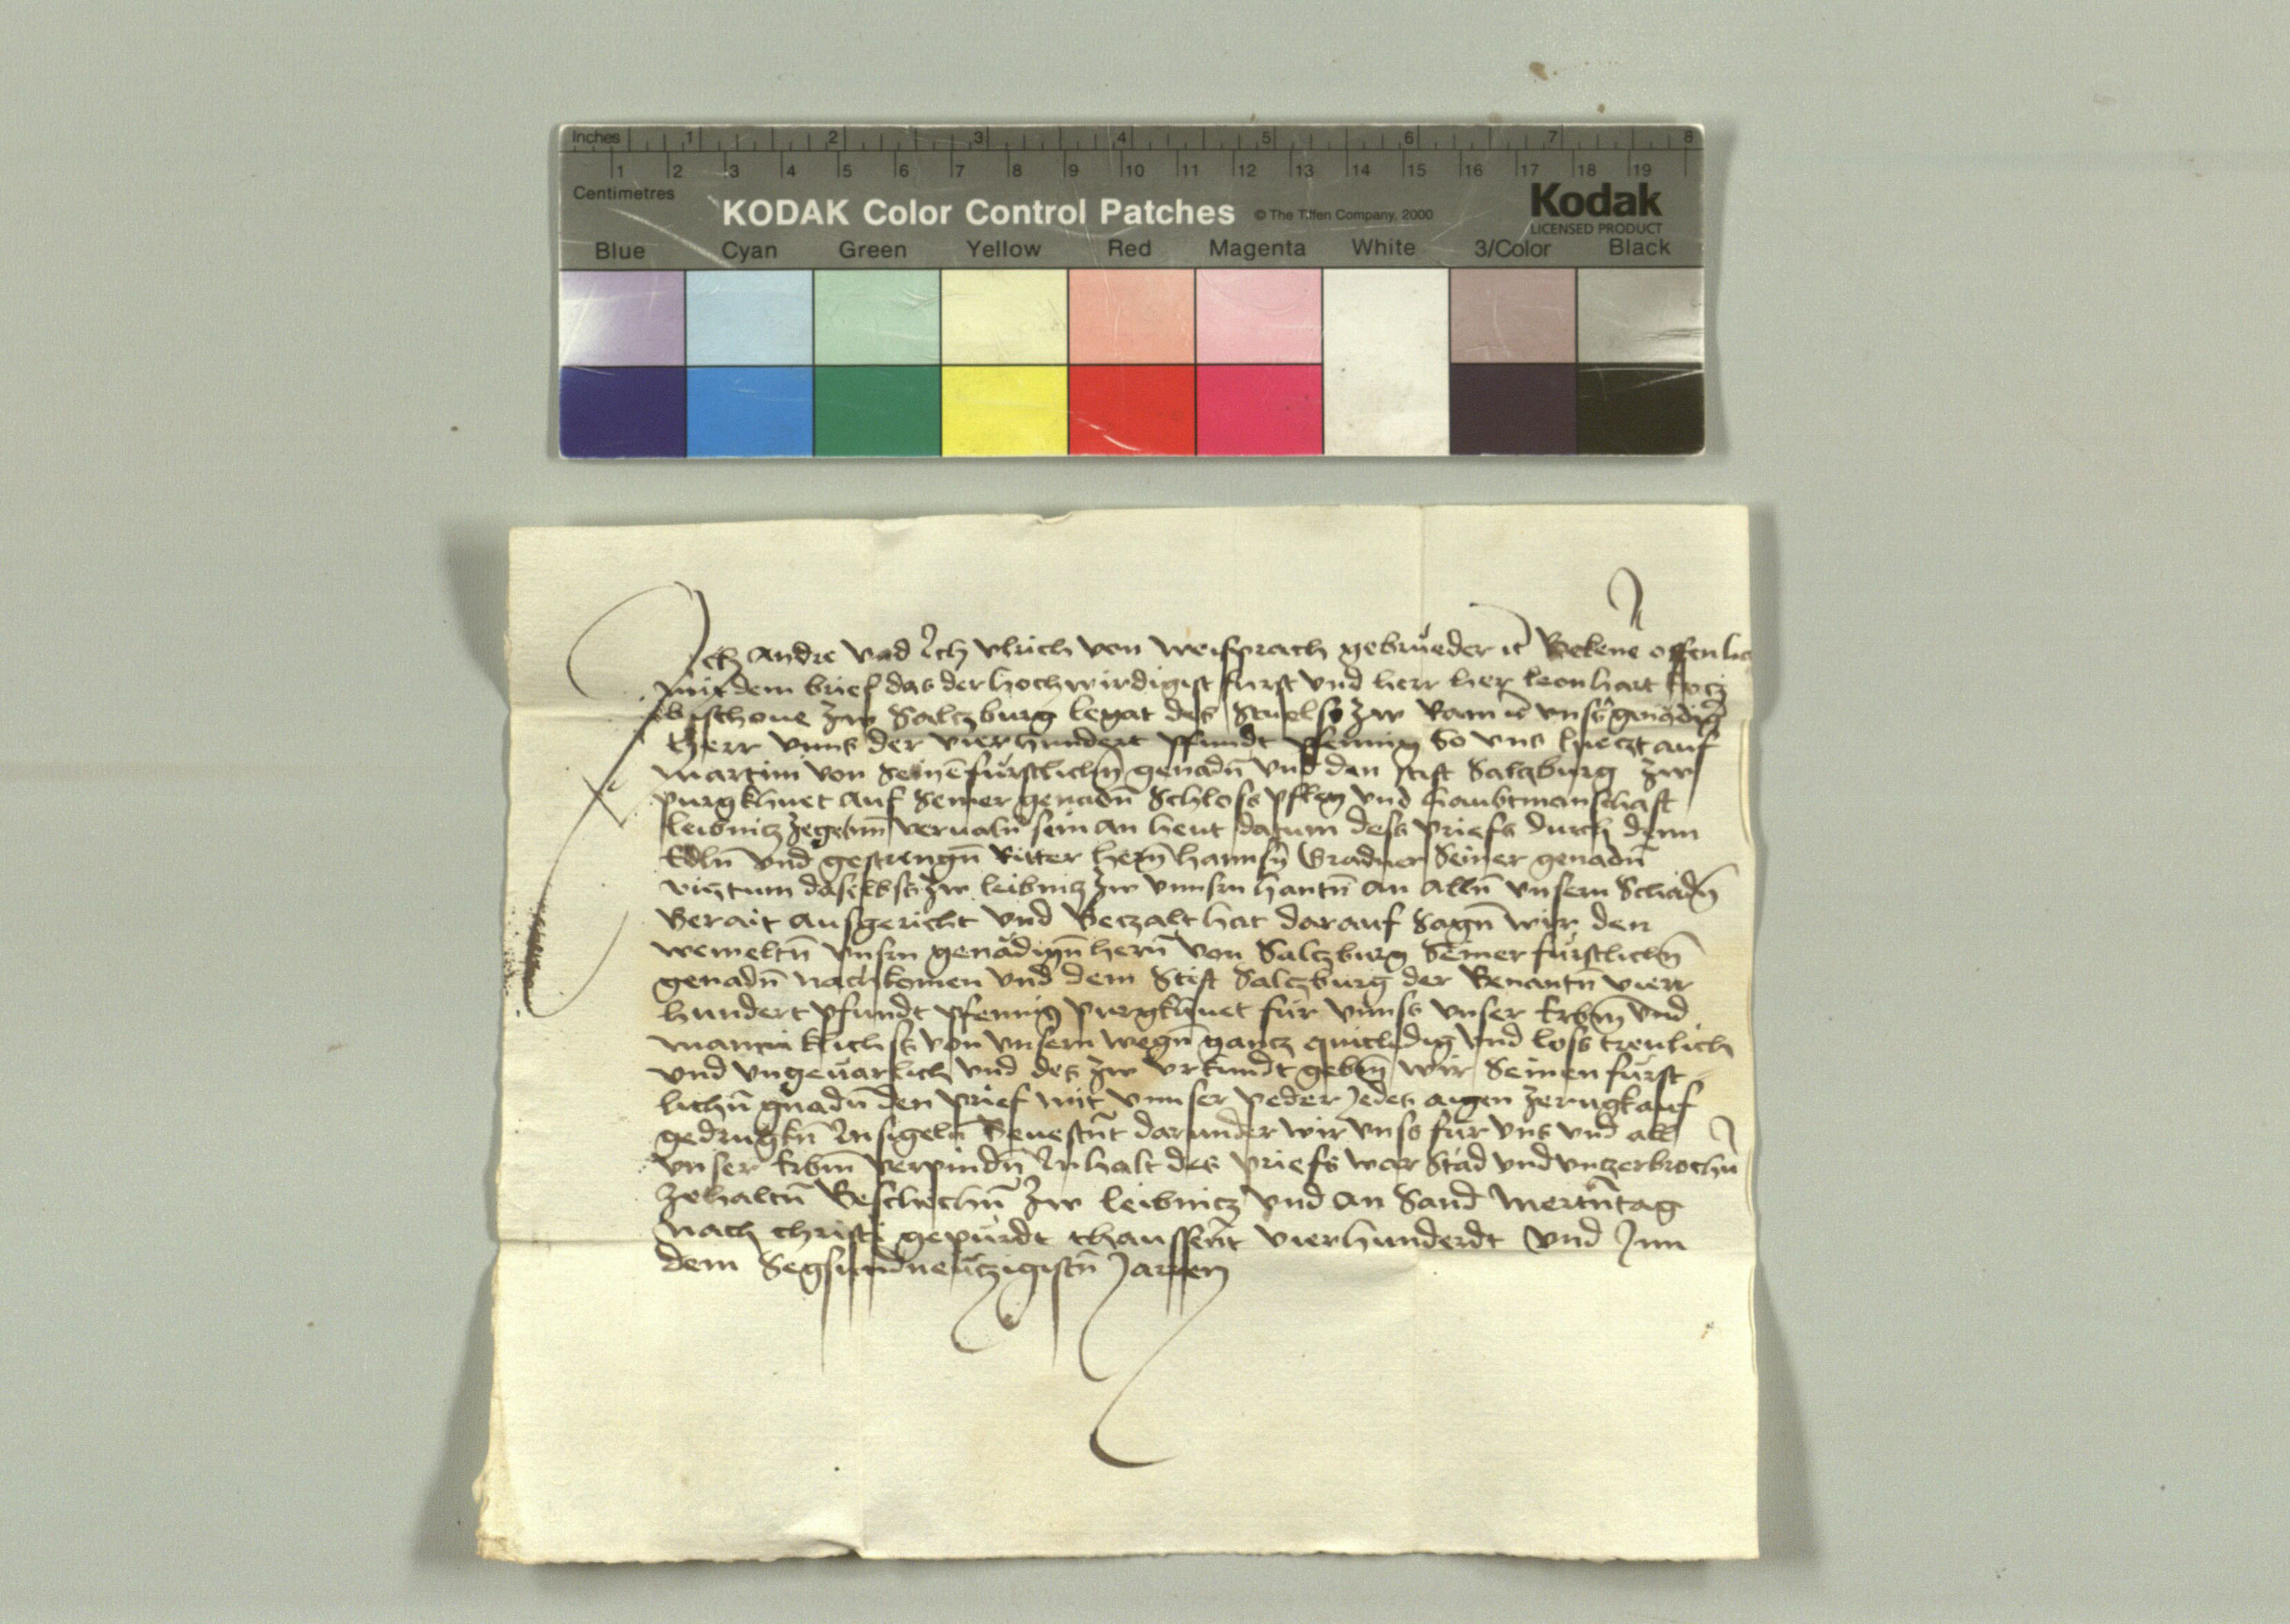 Inches 1 2 3 4 5 6 7 8
1 2 3 4 5 6 7 8 9 10 11 12 13 14 15 16 17 18 19
Centimetres
KODAK Color Control Patches © The Tiffen Company, 2000 Kodak
LICENSED PRODUCT
Blue Cyan Green Yellow Red Magenta White 3/Color Black
Ich Andre vnd Ich vlrich von weisprach gebrüeder ec Bekene offenlich
mit dem brief das der hochwirdigist furst vnd herr her leonhart Ertz
bischoue zw Saltzburg legat des Stuelss zw Ram ec vnser genadigr
herr vnns der vierhundert pfundt pfennig So vns lyeczt auf
Martini von Seinē fürstlichñ genadñ vnd den Stift Salzburg zw
purgkhuet auf Seiner genadñ Schloss pfleg vnd haubtmanschaft
leibnitz zegebñn veruolñ sein an heut datum dess priefs durch denn
Edlñ vnd gestrengñ Ritter herñ hannsñ Gradner Seiner genadñ
viztum daselbst zw leibnitz zw vnnsrn hantñ an Allñ vnsern Schadñ
Berait ausgericht vnd Beczalt hat darauf Sagñ wir den
wemeltñ vnsrn genädigñ herñ von Saltzburg Seiner fürstlichñ
genadñ nachkomen vnd dem Stift Saltzburg der Benantñ vierr
hundert pfundt pfennig purgkhuet für vnnss vnser Erbm̄ vnd
manniklichss von vnsern wegñ gantz quitledig vnd loss treulich
vnd vngeuärlich vnd des zw vrkundt gebm̄ wir Seinen fürst
lichñ gnadñ den prief mit vnnser peder Jedes aigen zerugkauf
gedrugkñ Insigelñ Beuestñt darunder wir vnss für vns vnd all
vnser Erbm̄ verpindñ Inhalt des priefs war Stád vnd vntzerbrochñ
zehaltñ Beschechñ zw leibnicz vnd an Sand Mertñtag
nach christi gepurdt thaussent vierhunderdt vnd Inn
dem Segsundneüczigistñ Jarren